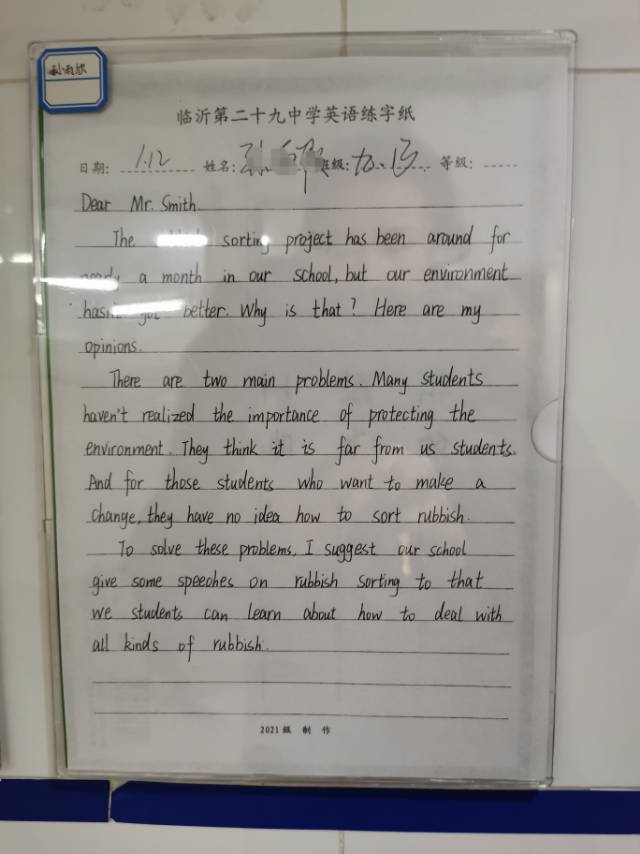 临沂第二十九中学英语练字纸
日期: 1.12 姓名: 班级: 等级:
Dear Mr. Smith.
The sorting project has been around for
a month in our school, but our environment
better. Why is that? Here are my
opinions.
There are two main problems. Many students
haven't realized the importance of protecting the
environment. They think it is far from us students.
And for those students who want to make a
change, they have no idea how to sort rubbish.
To solve these problems, I suggest our school
give some speeches on rubbish sorting to that
we students can learn about how to deal with
all kinds of rubbish.
2021级 制 作